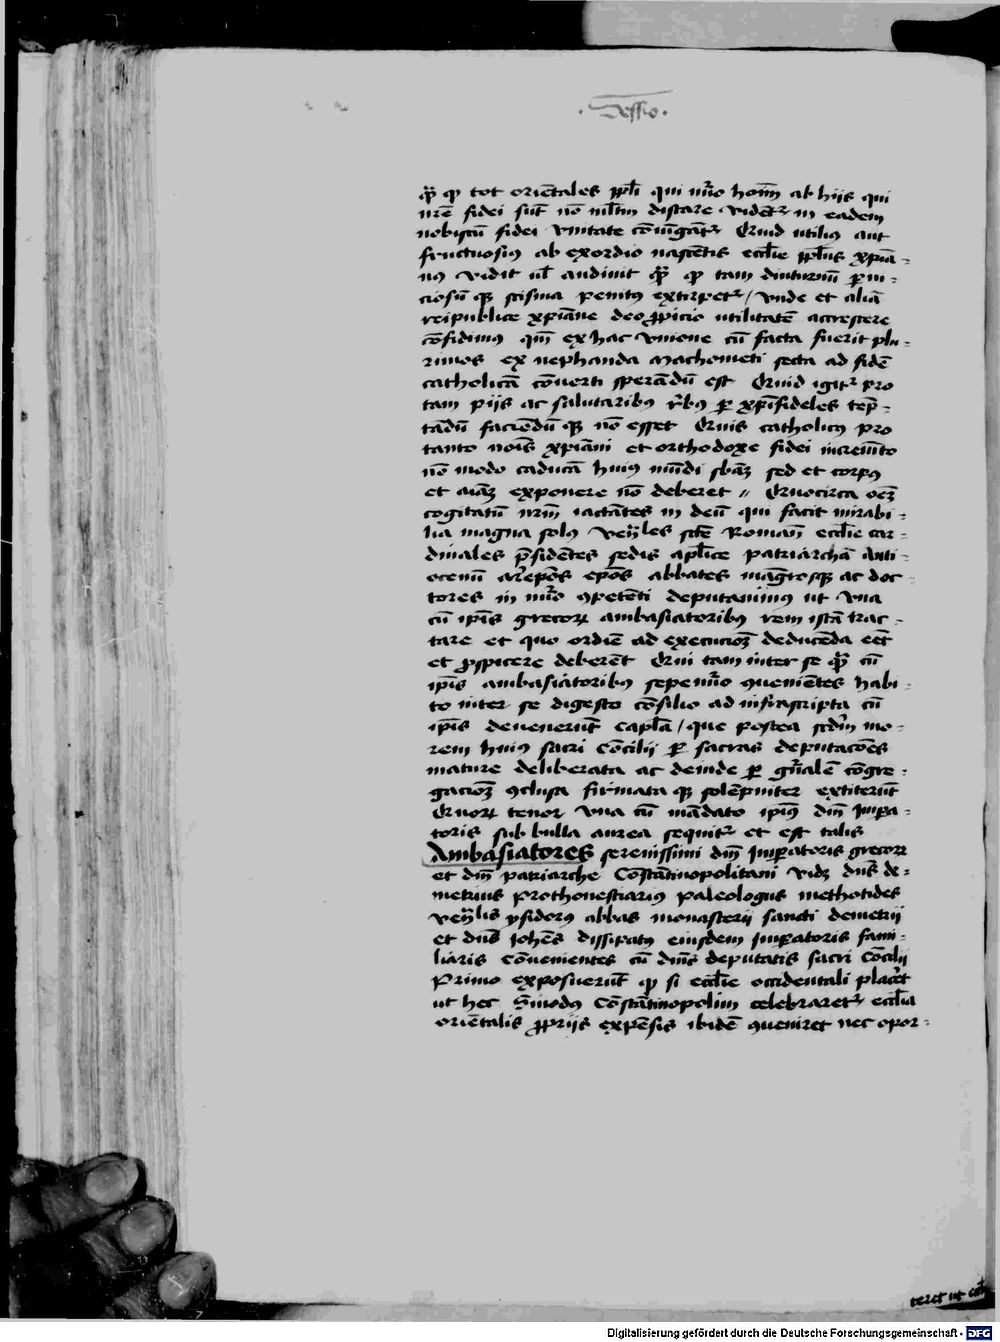 · Sessio ·
qͣ̄ ꝙ tot oriētales ppl̄i qui nūo hoīm ab hijs qui
nr̄e fidei sūt nō ml̄tm distare vidēt᷑ in eadem
nobiscū fidei vnitate cōiūgāt᷑ Quid utiliꝰ aut
fructuosiꝰ ab exordio nascētis eccl̄ie ppl̄us xp̄ia-
nꝰ vidit ul̄ audiuit qͣ̄ ꝙ tam diuturnū ꝑni-
ciosū qꝫ scisma penitꝰ extirpet᷑ / vnde et aliā
reipublice xp̄iane deo ꝓpicio utilitatē accrescere
cōfidimꝰ qm̄ ex hac vnione cū facta fuerit plu-
rimos ex nephanda Machometi secta ad fidē
catholicā cōuerti sperādū est Quid igit᷑ pro
tam pijs ac salutaribꝰ r̄bꝰ ꝑ xp̄ifideles tēp-
tādū faciēdū qꝫ nō esset Quis catholicꝰ pro
tanto noīs xp̄iani et orthodoxe fidei incremēto
nō modo caducā huiꝰ mūdi sb̄aꝫ sed et corpꝰ
et aīaꝫ exponere nō deberet // Quocirca oēꝫ
cogitatū nr̄m iactātes in deū qui facit mirabi-
lia magna solꝰ Ven̄les scē Roman̄ eccl̄ie car-
dinales p̄sidētes sedis apl̄ice patriarchā anti-
ocenū ar̄epos epōs abbates mgr̄osqꝫ ac doc
tores in nūo ꝯpetēti deputauimꝰ ut vna
cū ip̄is grecoꝝ ambasiatoribꝰ rem istā trac-
tare et quo ordīe ad execucioꝫ deducēda eēt
et ꝓspicere deberēt Qui tam inter se qͣ̄ cū
ip̄is ambasiatoribꝰ sepenūo ꝯueniētes habi-
to inter se digesto cōsilio ad infrascripta cū
ip̄is deuenerūt capl̄a / que postea scd̄m mo-
rem huiꝰ sacri Cōcilij ꝑ sacras deputacōes
mature deliberata ac deinde ꝑ gn̄alē cōgre-
gacioꝫ ꝯclusa firmata qꝫ solēpniter extiterūt
Quoꝝ tenor vna cū mādato ip̄iꝰ dn̄i Impa-
toris sub bulla aurea sequit᷑ et est talis
Ambasiatores serenissimi dn̄i Imꝑatoris grecoꝝ
et dn̄i patriarche Cōstātinopolitani vidꝫ dn̄s de-
metrius Prothonestiariꝰ paleologus methotides
ven̄lis ysiderꝰ abbas monasterij sancti demetrij
et dn̄s Joh̄es dissipatꝰ eiusdem Imꝑatoris fami-
liaris Cōuenientes cū dn̄is deputatis sacri Cōcilij
Primo exposuerūt ꝙ si eccl̄ie occidentali placēt
ut hec Sinodꝰ Cōstātinopolim celebraret᷑ eccl̄ia
oriētalis ꝓprijs expēsis ibidē ꝯueniret nec opor-
teret ut
Digitalisierung gefördert durch die Deutsche Forschungsgemeinschaft - DFG